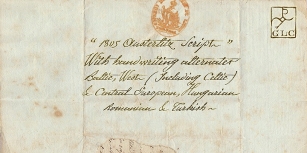 P
GLC
" 1805 Austerlitz Script "
With handwriting alternates
Baltic, West (Including Celtic)
& Central European, Hungarian
Romanian & Turkish